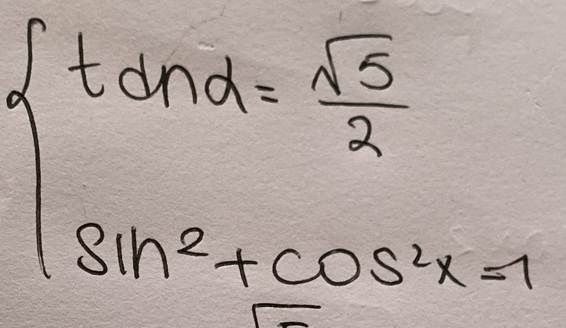 tanα = √5/2
sin² + cos²x = 1